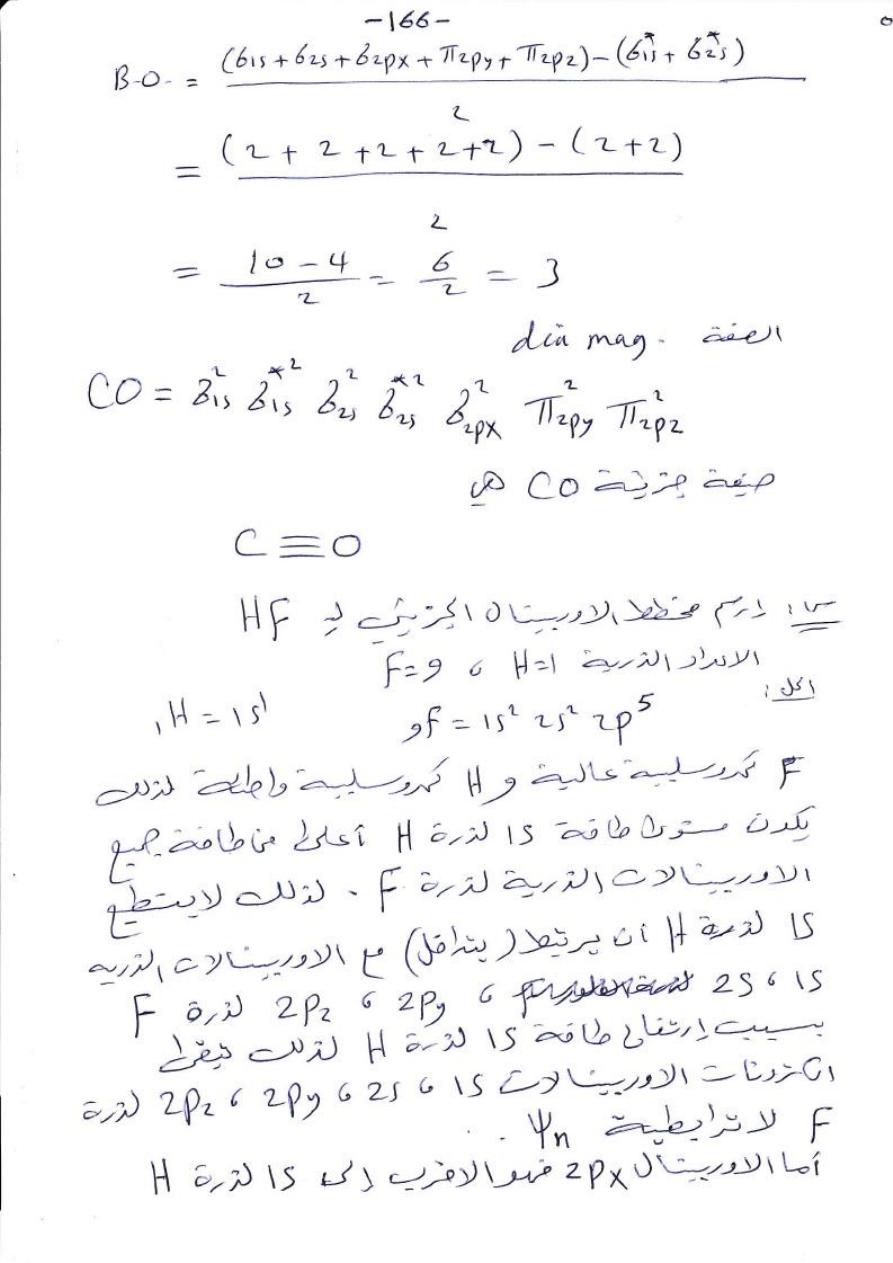 -166-
B.O. = (б1s + б2s + б2px + π2py + π2pz) - (б*1s + б*2s) / 2
= (2 + 2 + 2 + 2 + 2) - (2 + 2) / 2
= 10 - 4 / 2 = 6 / 2 = 3
الصفة dia mag.
CO = б1s² б*1s² б2s² б*2s² б2px² π2py² π2pz²
صيغة جزيئة CO هي
C≡O
س: ارسم مخطط الاوربيتال الجزيئي لـ HF
الاعداد الذرية H=1 ، F=9
الحل:
₉F = 1s² 2s² 2p⁵ ₁H = 1s¹
F كهروسلبية عالية و H كهروسلبية واطئة لذلك
يكون مستوى طاقة 1s لذرة H أعلى من طاقة جميع
الاوربيتالات الذرية لذرة F . لذلك لايستطيع
1s لذرة H أن يرتبط (يتداخل) مع الاوربيتالات الذريه
1s ، 2s ، 2py ، 2pz لذرة F
بسبب إرتفاع طاقة 1s لذرة H لذلك تبقى
الكترونات الاوربيتالات 1s ، 2s ، 2py ، 2pz لذرة
F لاترابطية Ψn .
أما الاوربيتال 2px فهو الاقرب إلى 1s لذرة H